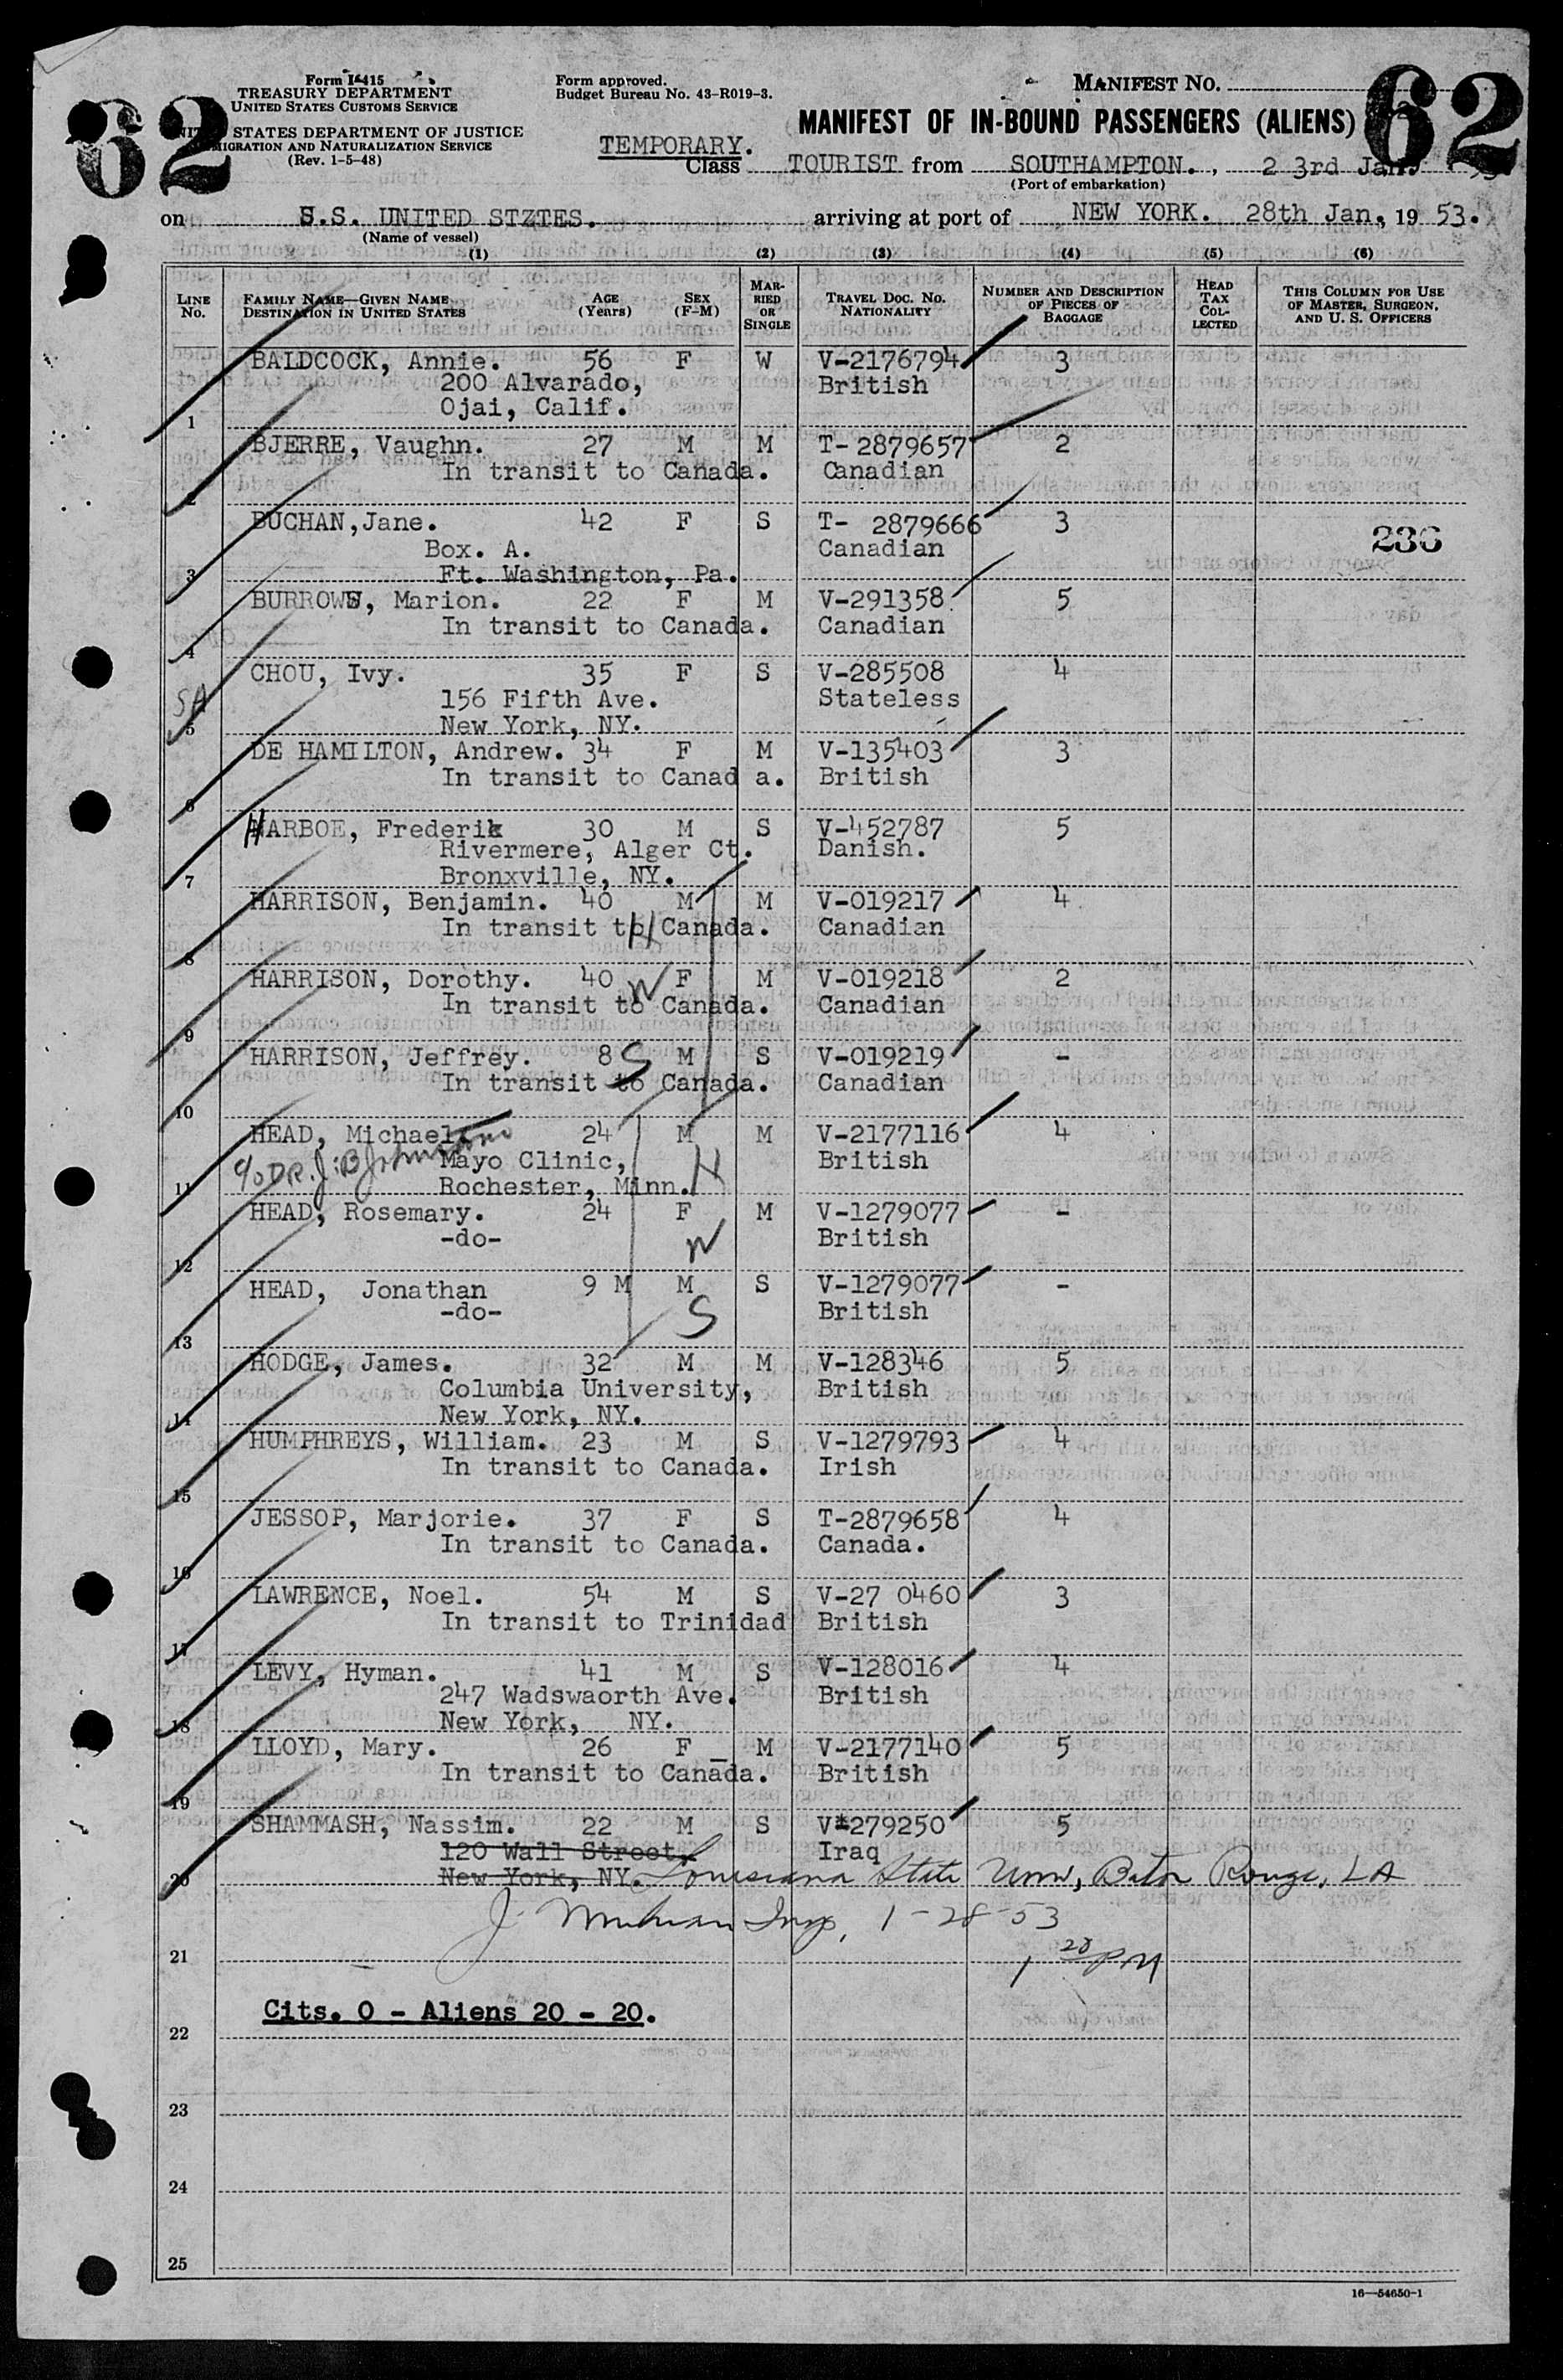 62
Form I-415
TREASURY DEPARTMENT
UNITED STATES CUSTOMS SERVICE
STATES DEPARTMENT OF JUSTICE
IMMIGRATION AND NATURALIZATION SERVICE
(Rev. 1-5-48)
Form approved.
Budget Bureau No. 43-R019-3.
MANIFEST NO.
62
MANIFEST OF IN-BOUND PASSENGERS (ALIENS)
TEMPORARY.
Class TOURIST from SOUTHAMPTON., 2 3rd Jan.
(Port of embarkation)
on S.S. UNITED STZTES. arriving at port of NEW YORK. 28th Jan, 19 53.
(Name of vessel)
(1) (2) (3) (4) (5) (6)
LINE No. FAMILY NAME—GIVEN NAME DESTINATION IN UNITED STATES AGE (Years) SEX (F-M) MARRIED OR SINGLE TRAVEL DOC. NO. NATIONALITY NUMBER AND DESCRIPTION OF PIECES OF BAGGAGE HEAD TAX COLLECTED THIS COLUMN FOR USE OF MASTER, SURGEON, AND U. S. OFFICERS
BALDCOCK, Annie. 56 F W V-2176794 3
200 Alvarado, British
Ojai, Calif.
1
BJERRE, Vaughn. 27 M M T-2879657 2
In transit to Canada. Canadian
2
BUCHAN,Jane. 42 F S T- 2879666 3
Box. A. Canadian 236
3 Ft. Washington, Pa.
BURROWS, Marion. 22 F M V-291358 5
In transit to Canada. Canadian
4
CHOU, Ivy. 35 F S V-285508 4
SA 156 Fifth Ave. Stateless
5 New York, NY.
DE HAMILTON, Andrew. 34 F M V-135403 3
In transit to Canad a. British
6
HARBOE, Frederik 30 M S V-452787 5
Rivermere, Alger Ct. Danish.
7 Bronxville, NY.
HARRISON, Benjamin. 40 M M V-019217 4
In transit to Canada. H Canadian
8
HARRISON, Dorothy. 40 W F M V-019218 2
In transit to Canada. Canadian
9
HARRISON, Jeffrey. 8 S M S V-019219 -
In transit to Canada. Canadian
10
HEAD, Michael 24 M M V-2177116 4
c/o DR. J. B Johnson Mayo Clinic, H British
11 Rochester, Minn.
HEAD, Rosemary. 24 F M V-1279077 -
-do- W British
12
HEAD, Jonathan 9 M M S V-1279077 -
-do- S British
13
HODGE, James. 32 M M V-128346 5
Columbia University, British
14 New York, NY.
HUMPHREYS, William. 23 M S V-1279793 4
In transit to Canada. Irish
15
JESSOP, Marjorie. 37 F S T-2879658 4
In transit to Canada. Canada.
16
LAWRENCE, Noel. 54 M S V-27 0460 3
In transit to Trinidad British
17
LEVY, Hyman. 41 M S V-128016 4
247 Wadswaorth Ave. British
18 New York, NY.
LLOYD, Mary. 26 F M V-2177140 5
In transit to Canada. British
19
SHAMMASH, Nassim. 22 M S V-279250 5
120 Wall Street, Iraq
20 New York, NY. Louisiana State Univ, Baton Rouge, LA
J. Insp, 1-28-53
21 1 20 PM
Cits. 0 - Aliens 20 - 20.
22
23
24
25
16—54650-1